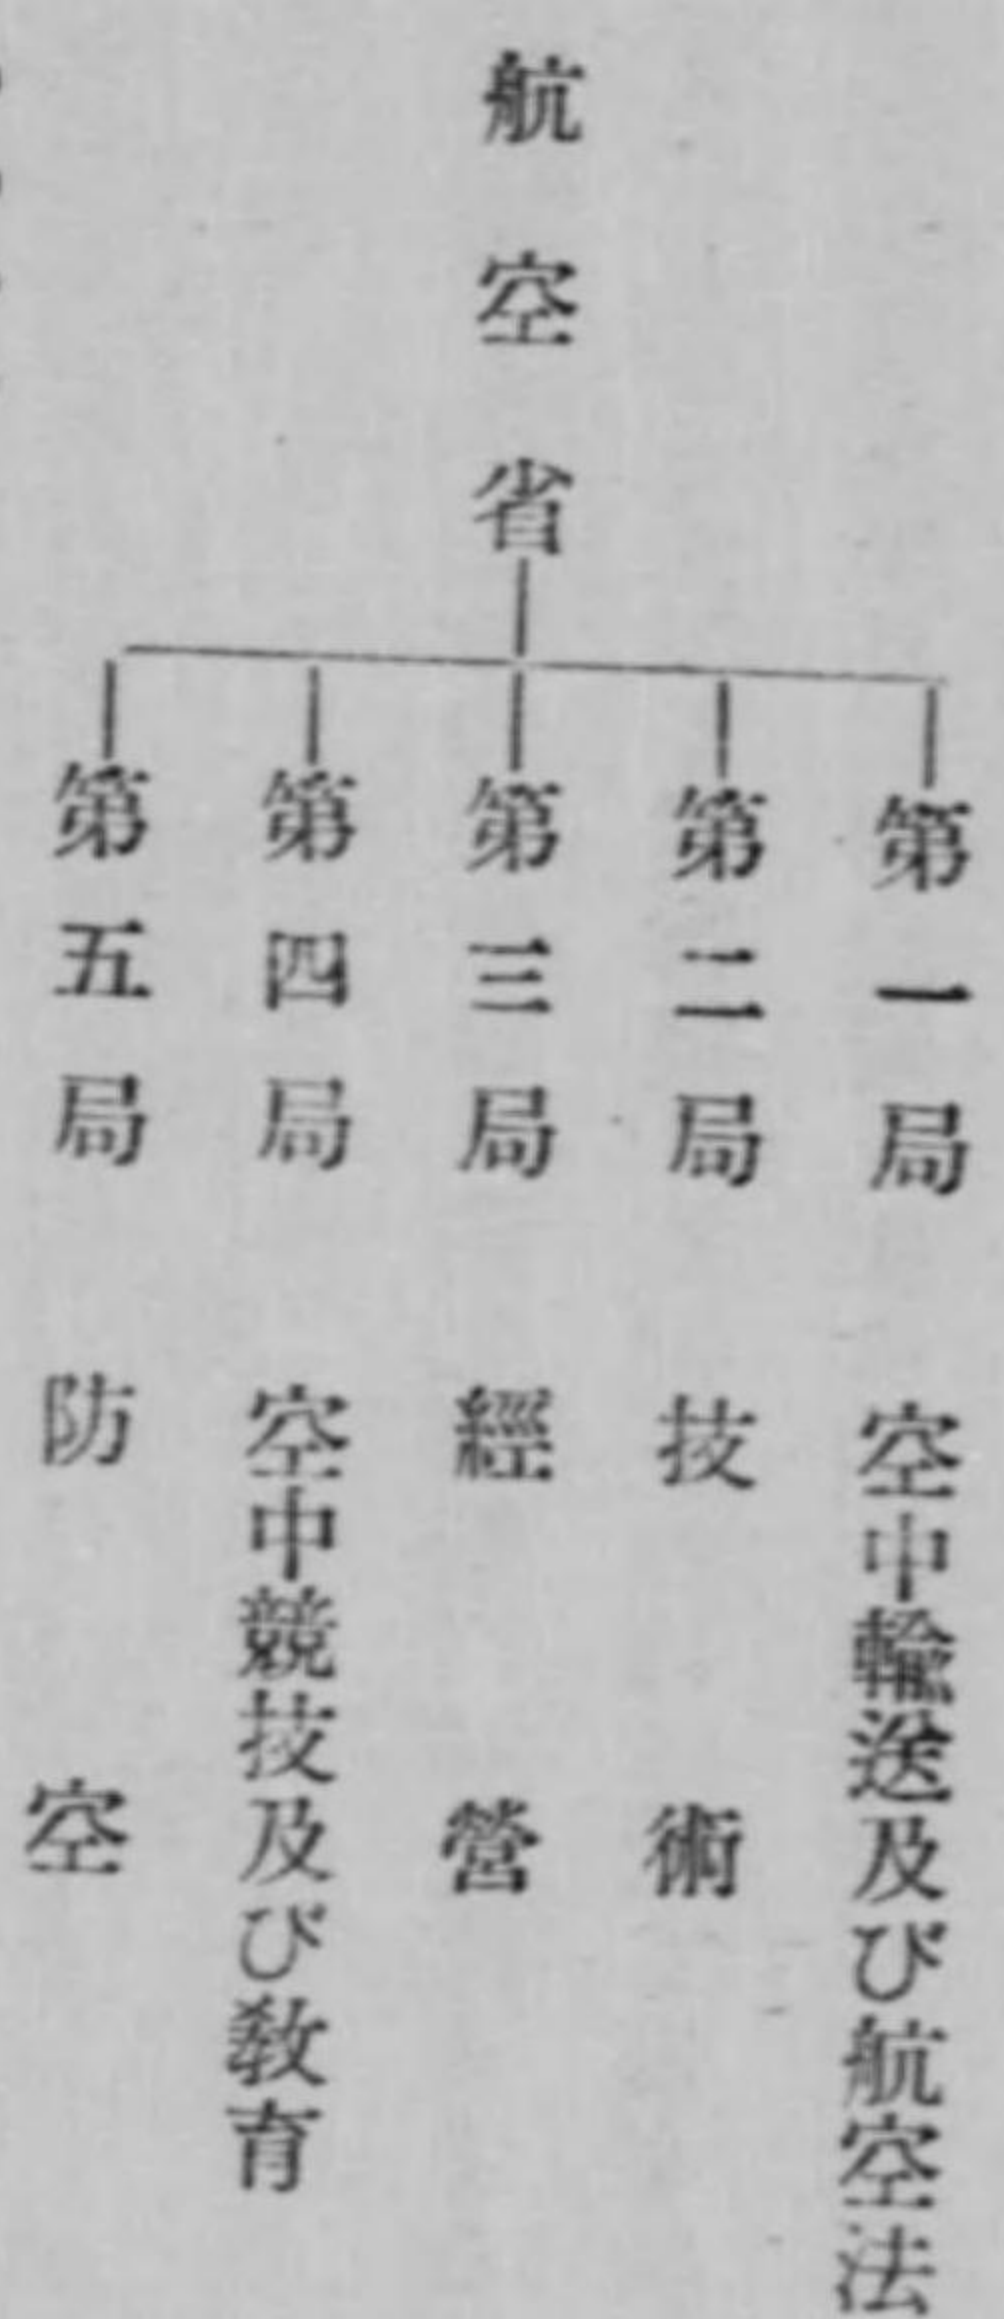 航空省
第一局 空中輸送及び航空法
第二局 技術
第三局 經營
第四局 空中競技及び敎育
第五局 防空